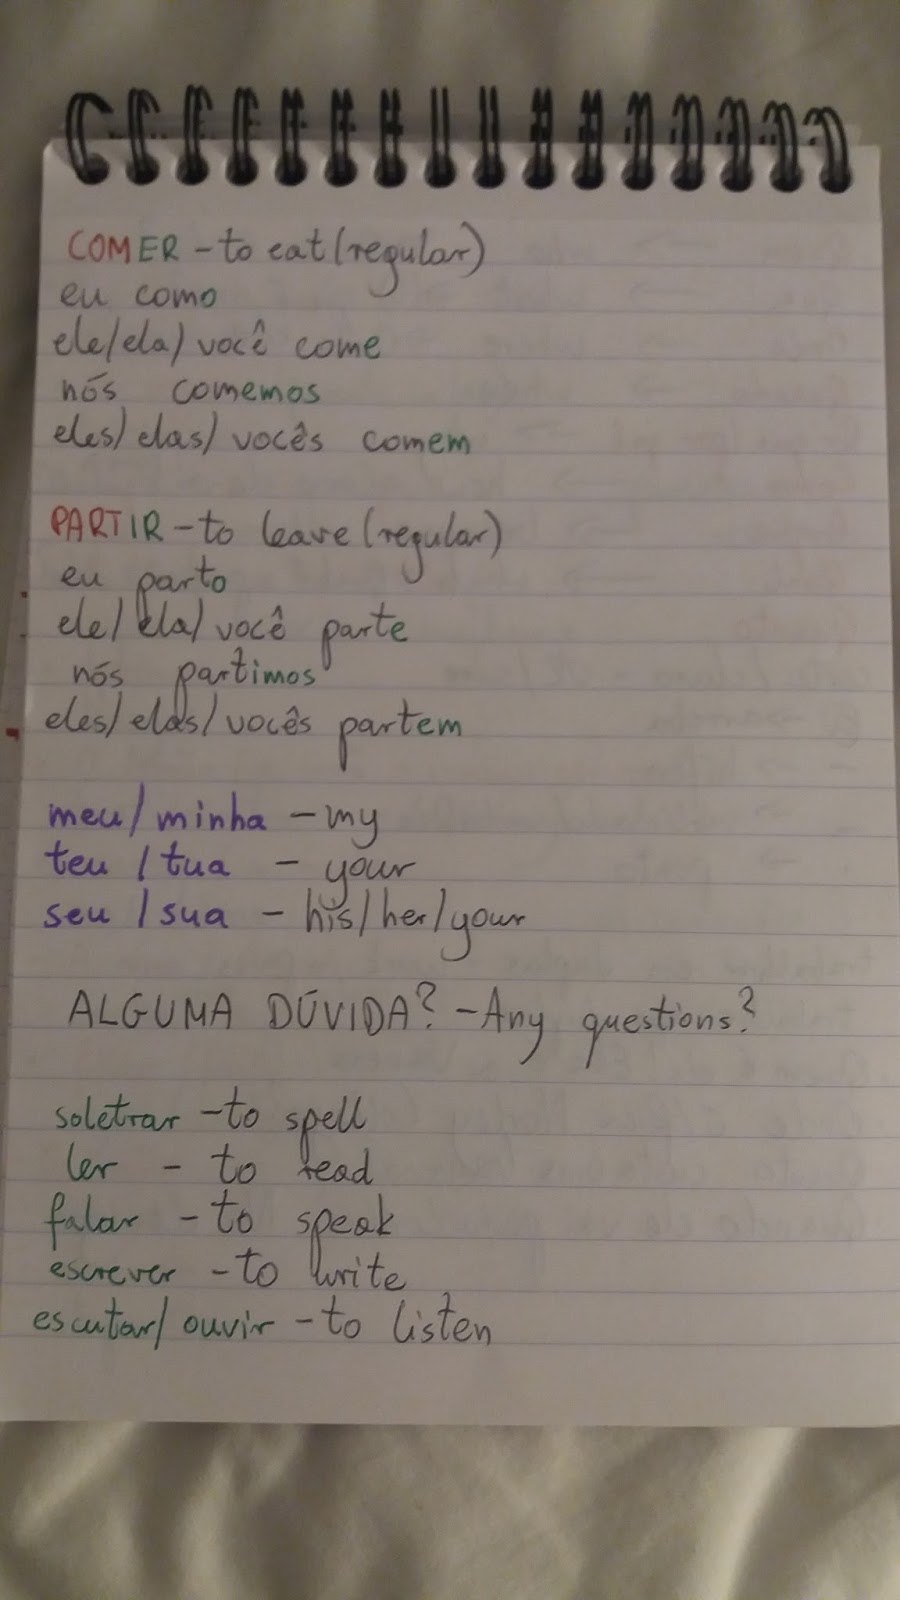 COMER - to eat (regular)
eu como
ele/ela/você come
nós comemos
eles/elas/vocês comem
PARTIR - to leave (regular)
eu parto
ele/ela/você parte
nós partimos
eles/elas/vocês partem
meu/minha - my
teu/tua - your
seu/sua - his/her/your
ALGUMA DÚVIDA? - Any questions?
soletrar - to spell
ler - to read
falar - to speak
escrever - to write
escutar/ouvir - to listen